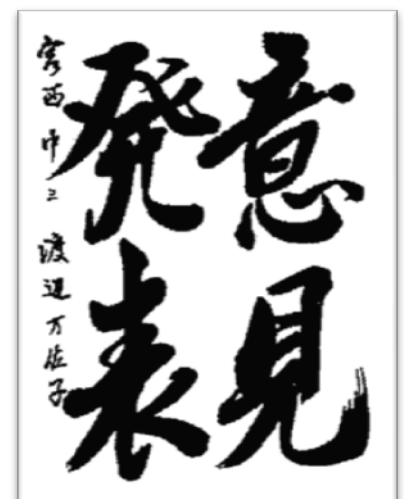 意見
発表
宮西中三 渡辺万佐子